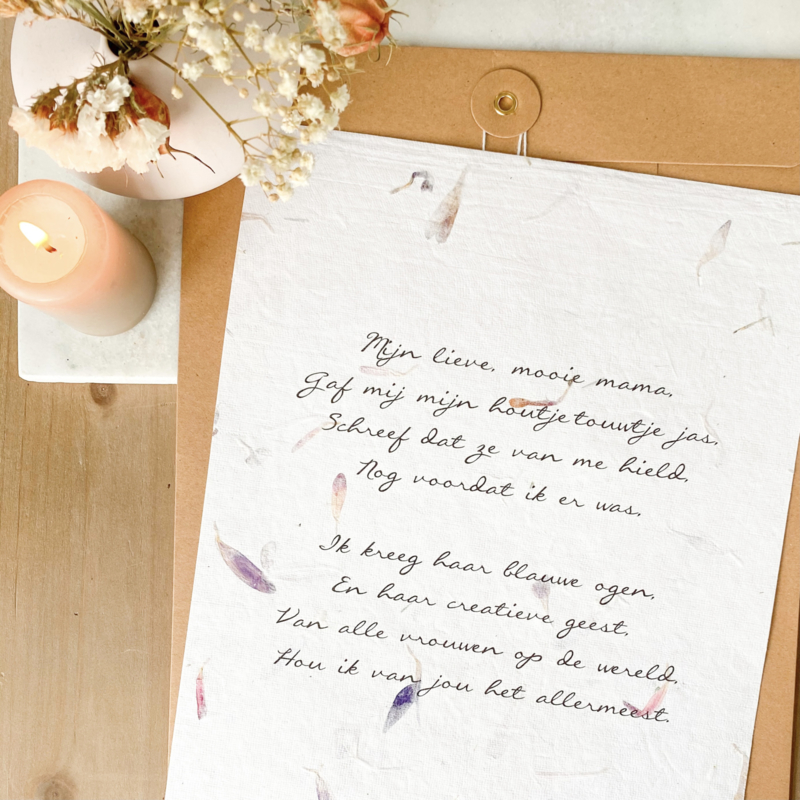 Mijn lieve, mooie mama,
Gaf mij mijn houtjetouwtje jas,
Schreef dat ze van me hield,
Nog voordat ik er was.
Ik kreeg haar blauwe ogen,
En haar creatieve geest,
Van alle vrouwen op de wereld,
Hou ik van jou het allermeest.